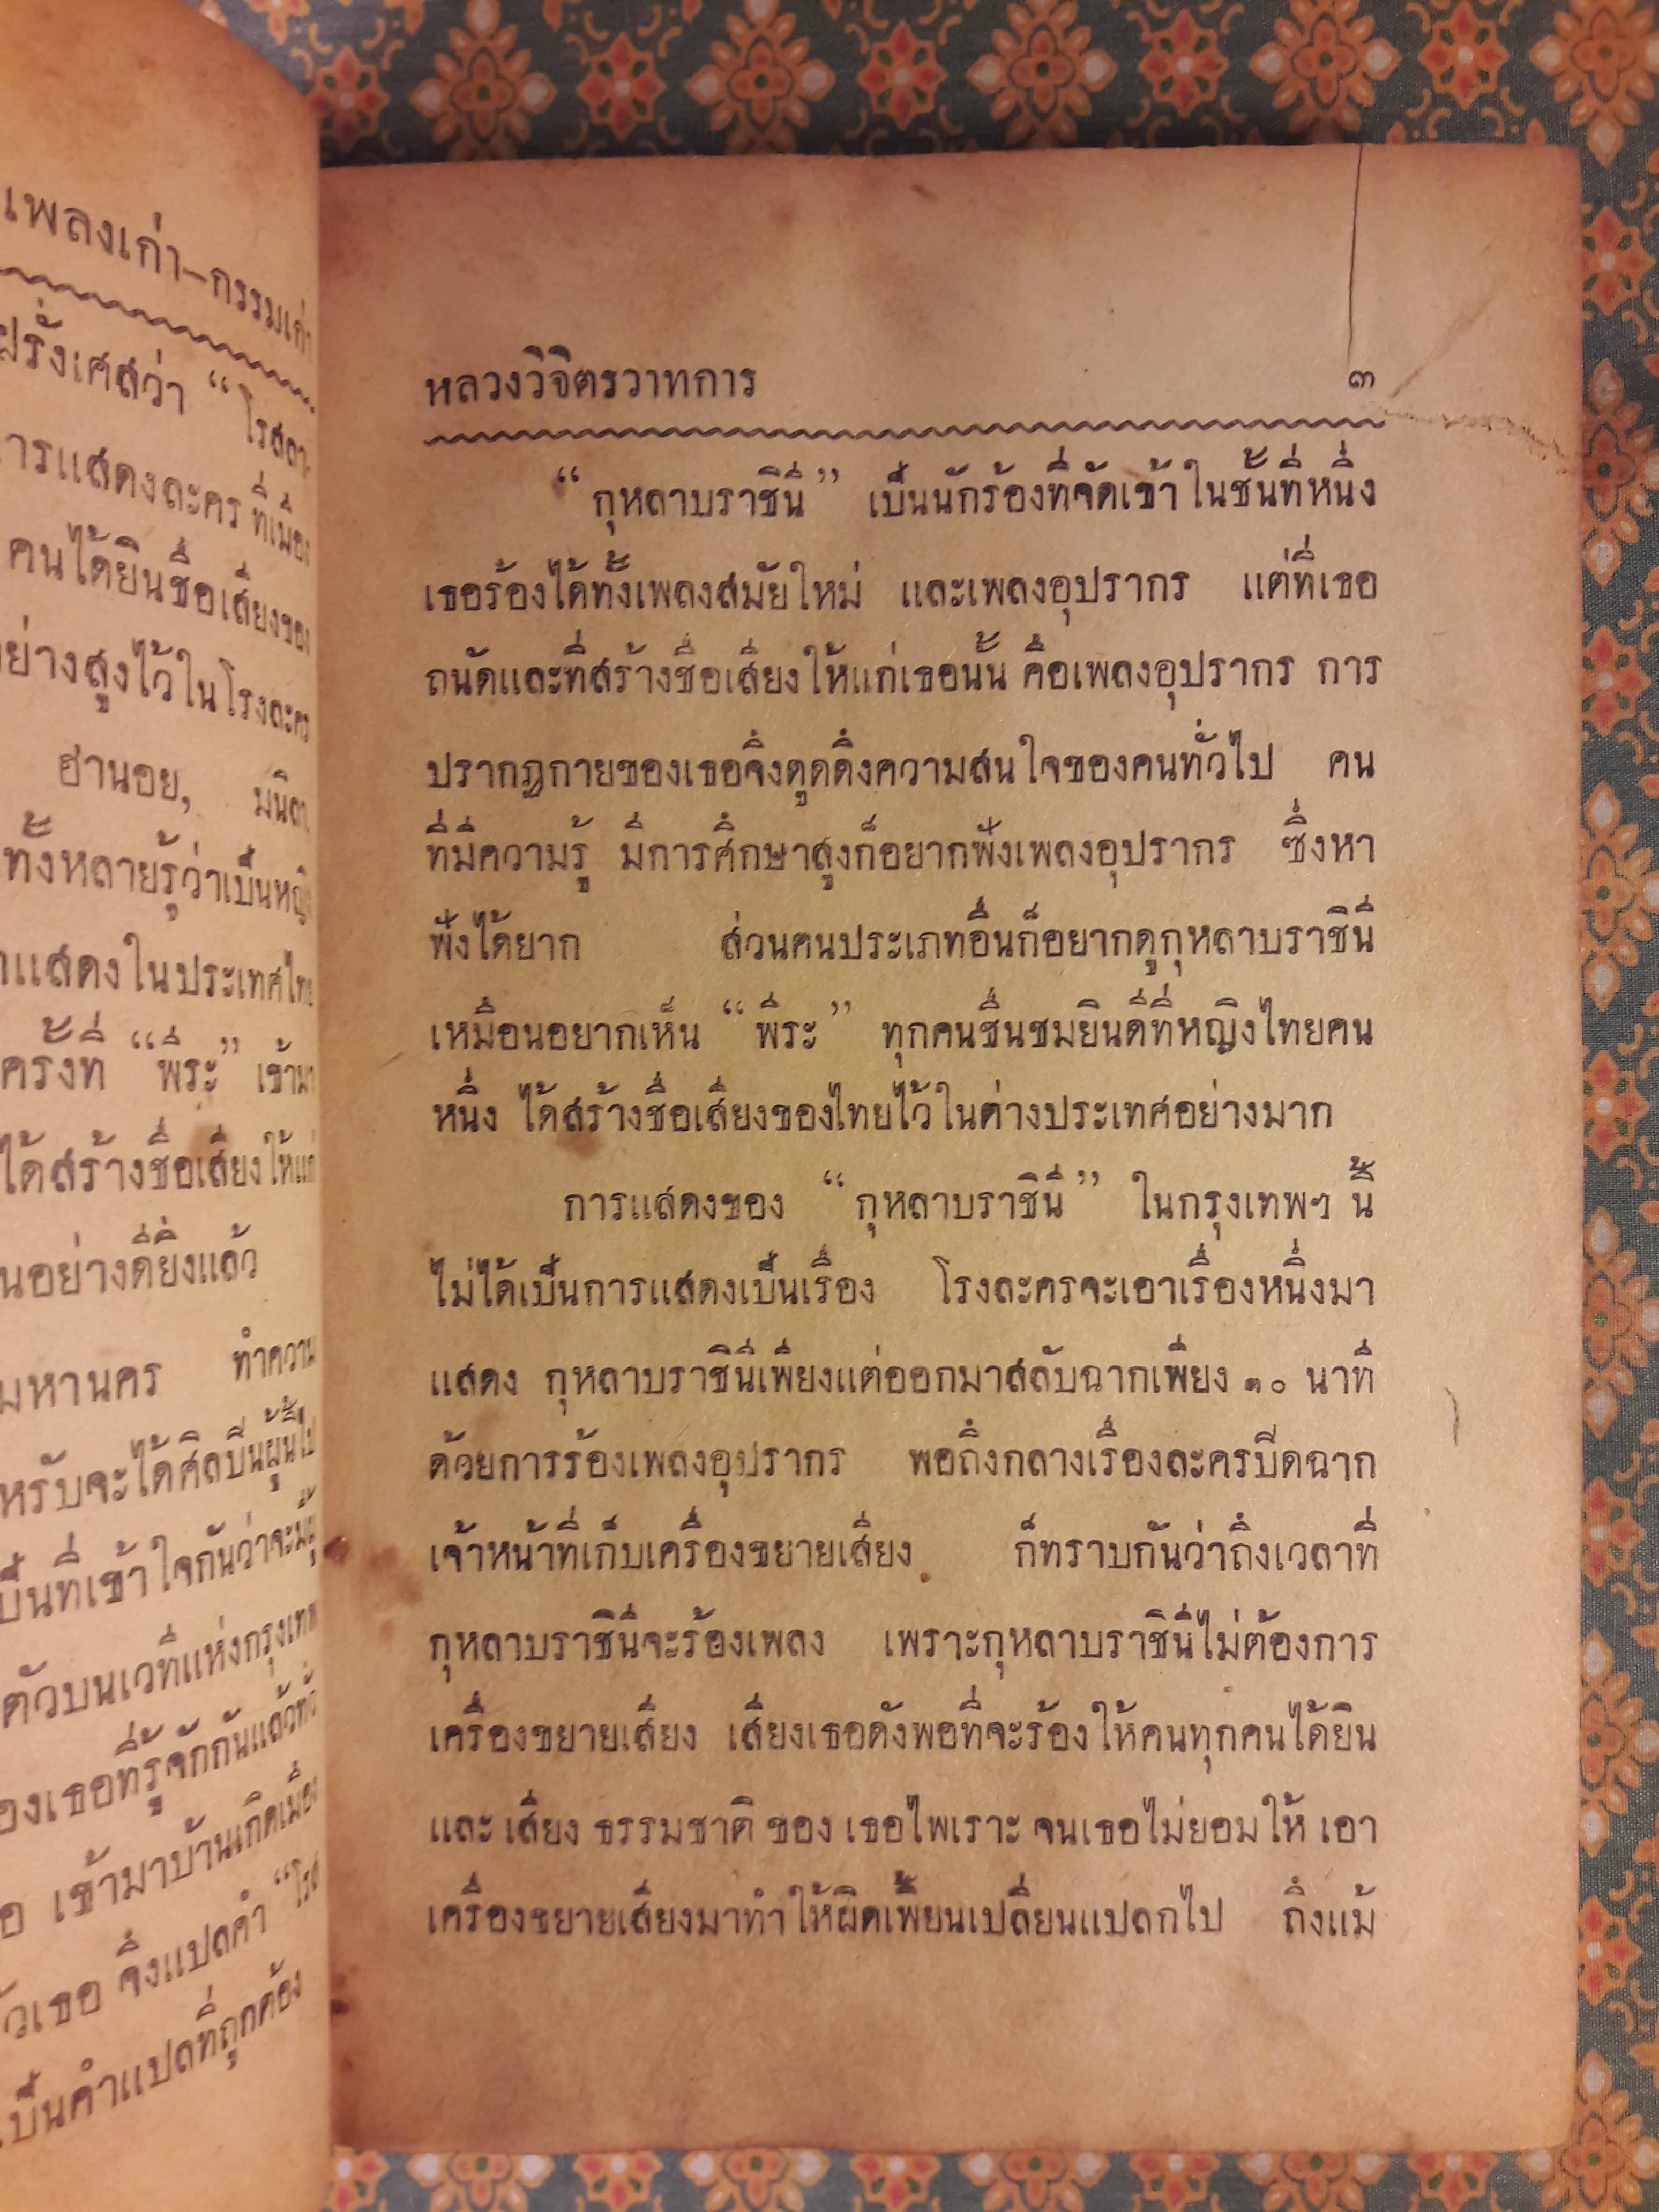 เพลงเก่า–กรรมเก่า
ฝรั่งเศสว่า “โรสลา-
การแสดงละครที่เมือง
คนได้ยินชื่อเสียงของ
อย่างสูงไว้ในโรงละคร
ฮานอย, มนิลา,
ทั้งหลายรู้ว่าเป็นหญิง
แสดงในประเทศไทย
ครั้งที่ “พีระ” เข้ามา
ได้สร้างชื่อเสียงให้แก่
อย่างดียิ่งแล้ว
มหานคร ทำความ
จะได้ศิลปินผู้นี้ไป
เป็นที่เข้าใจกันว่าจะมี
ตัวบนเวทีแห่งกรุงเทพ
ของเธอที่รู้จักกันแล้วทั่ว
เข้ามาบ้านเกิดเมือง
ตัวเธอ จึงแปลคำ “โรส
เป็นคำแปลที่ถูกต้อง
หลวงวิจิตรวาทการ ๓
“กุหลาบราชินี” เป็นนักร้องที่จัดเข้าในชั้นที่หนึ่ง
เธอร้องได้ทั้งเพลงสมัยใหม่ และเพลงอุปรากร แต่ที่เธอ
ถนัดและที่สร้างชื่อเสียงให้แก่เธอนั้น คือเพลงอุปรากร การ
ปรากฏกายของเธอจึงดูดดึงความสนใจของคนทั่วไป คน
ที่มีความรู้ มีการศึกษาสูงก็อยากฟังเพลงอุปรากร ซึ่งหา
ฟังได้ยาก ส่วนคนประเภทอื่นก็อยากดูกุหลาบราชินี
เหมือนอยากเห็น “พีระ” ทุกคนชื่นชมยินดีที่หญิงไทยคน
หนึ่ง ได้สร้างชื่อเสียงของไทยไว้ในต่างประเทศอย่างมาก
การแสดงของ “กุหลาบราชินี” ในกรุงเทพฯ นี้
ไม่ได้เป็นการแสดงเป็นเรื่อง โรงละครจะเอาเรื่องหนึ่งมา
แสดง กุหลาบราชินีเพียงแต่ออกมาสลับฉากเพียง ๑๐ นาที
ด้วยการร้องเพลงอุปรากร พอถึงกลางเรื่องละครปิดฉาก
เจ้าหน้าที่เก็บเครื่องขยายเสียง ก็ทราบกันว่าถึงเวลาที่
กุหลาบราชินีจะร้องเพลง เพราะกุหลาบราชินีไม่ต้องการ
เครื่องขยายเสียง เสียงเธอดังพอที่จะร้องให้คนทุกคนได้ยิน
และ เสียง ธรรมชาติ ของ เธอไพเราะ จนเธอไม่ยอมให้ เอา
เครื่องขยายเสียงมาทำให้ผิดเพี้ยนเปลี่ยนแปลกไป ถึงแม้